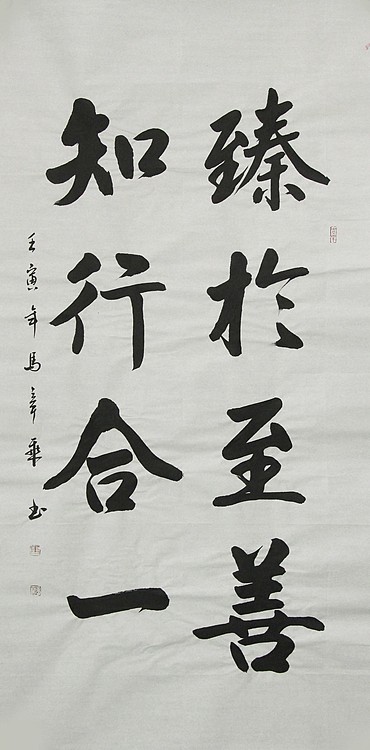 臻於至善
知行合一
壬寅年馬章乘书